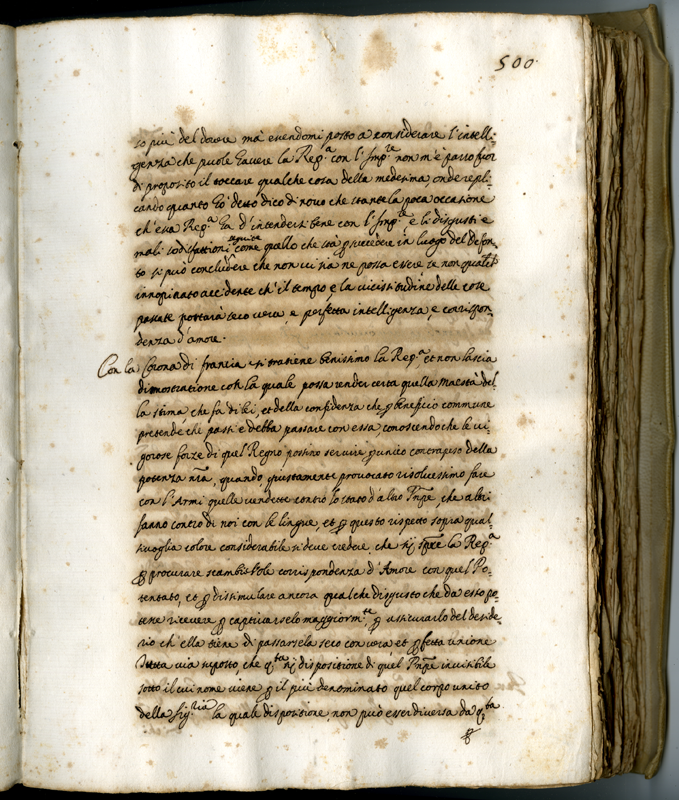 500.
so più del dovere mà essendomi posto a considerare l'intelli-
genza che puole havere la Rep.ca con l'Imp.re non m'è parso fuor
di proposito il toccare qualche cosa della medesima, onde repli-
cando quanto hò detto dico di novo che stante la poca occasione
ch'essa Rep.ca ha d'intendersi bene con l'Imp.re e li disgusti e
mali sodisfattioni seguite come quello che stà p succedere in luogo del
to si può concludere che non vi sia ne possa essere se non qualche
innopinato accidente ch'il tempo, e la vicissitudine delle cose
passate portarà seco vera, e perfetta intelligenza, e corrispon-
denza d'amore.
Con la Corona di francia si trattiene benissimo la Rep.ca et non lascia
dimostratione con la quale possa render certa quella Maestà del
la stima, che fa di lei, et della confidenza che p beneficio commune
pretende che passi e debba passare con essa, conoscendo che le vi-
gorose forze di quel Regno possino servire p unico contrapeso della
potenza nra, quando giustamente provocato risolvessimo fare
con l'Armi quelle vendette contro lo stato d'altro Pnpe, che altri
fanno contro di noi con le lingue, et p questo rispetto sopra qual-
sivoglia colore considerabile si deve credere che la Rep.ca
p procurare scambievole corrispondenza d'Amore con quel Po-
tentato, et p dissimulare ancora qualche disgusto che da esso po-
tesse ricevere p captivarselo maggiorm.te p assicurarlo del deside-
rio ch'ella tiene di passarsela seco con vera et pfetta unione
Tutta via supposto, che q.ta dispositione di quel Pnpe invisibile
sotto il cui nome viene p il più denominato quel corpo unito
della Sig.ria la quale dispositione, non può esser diversa da q.ta